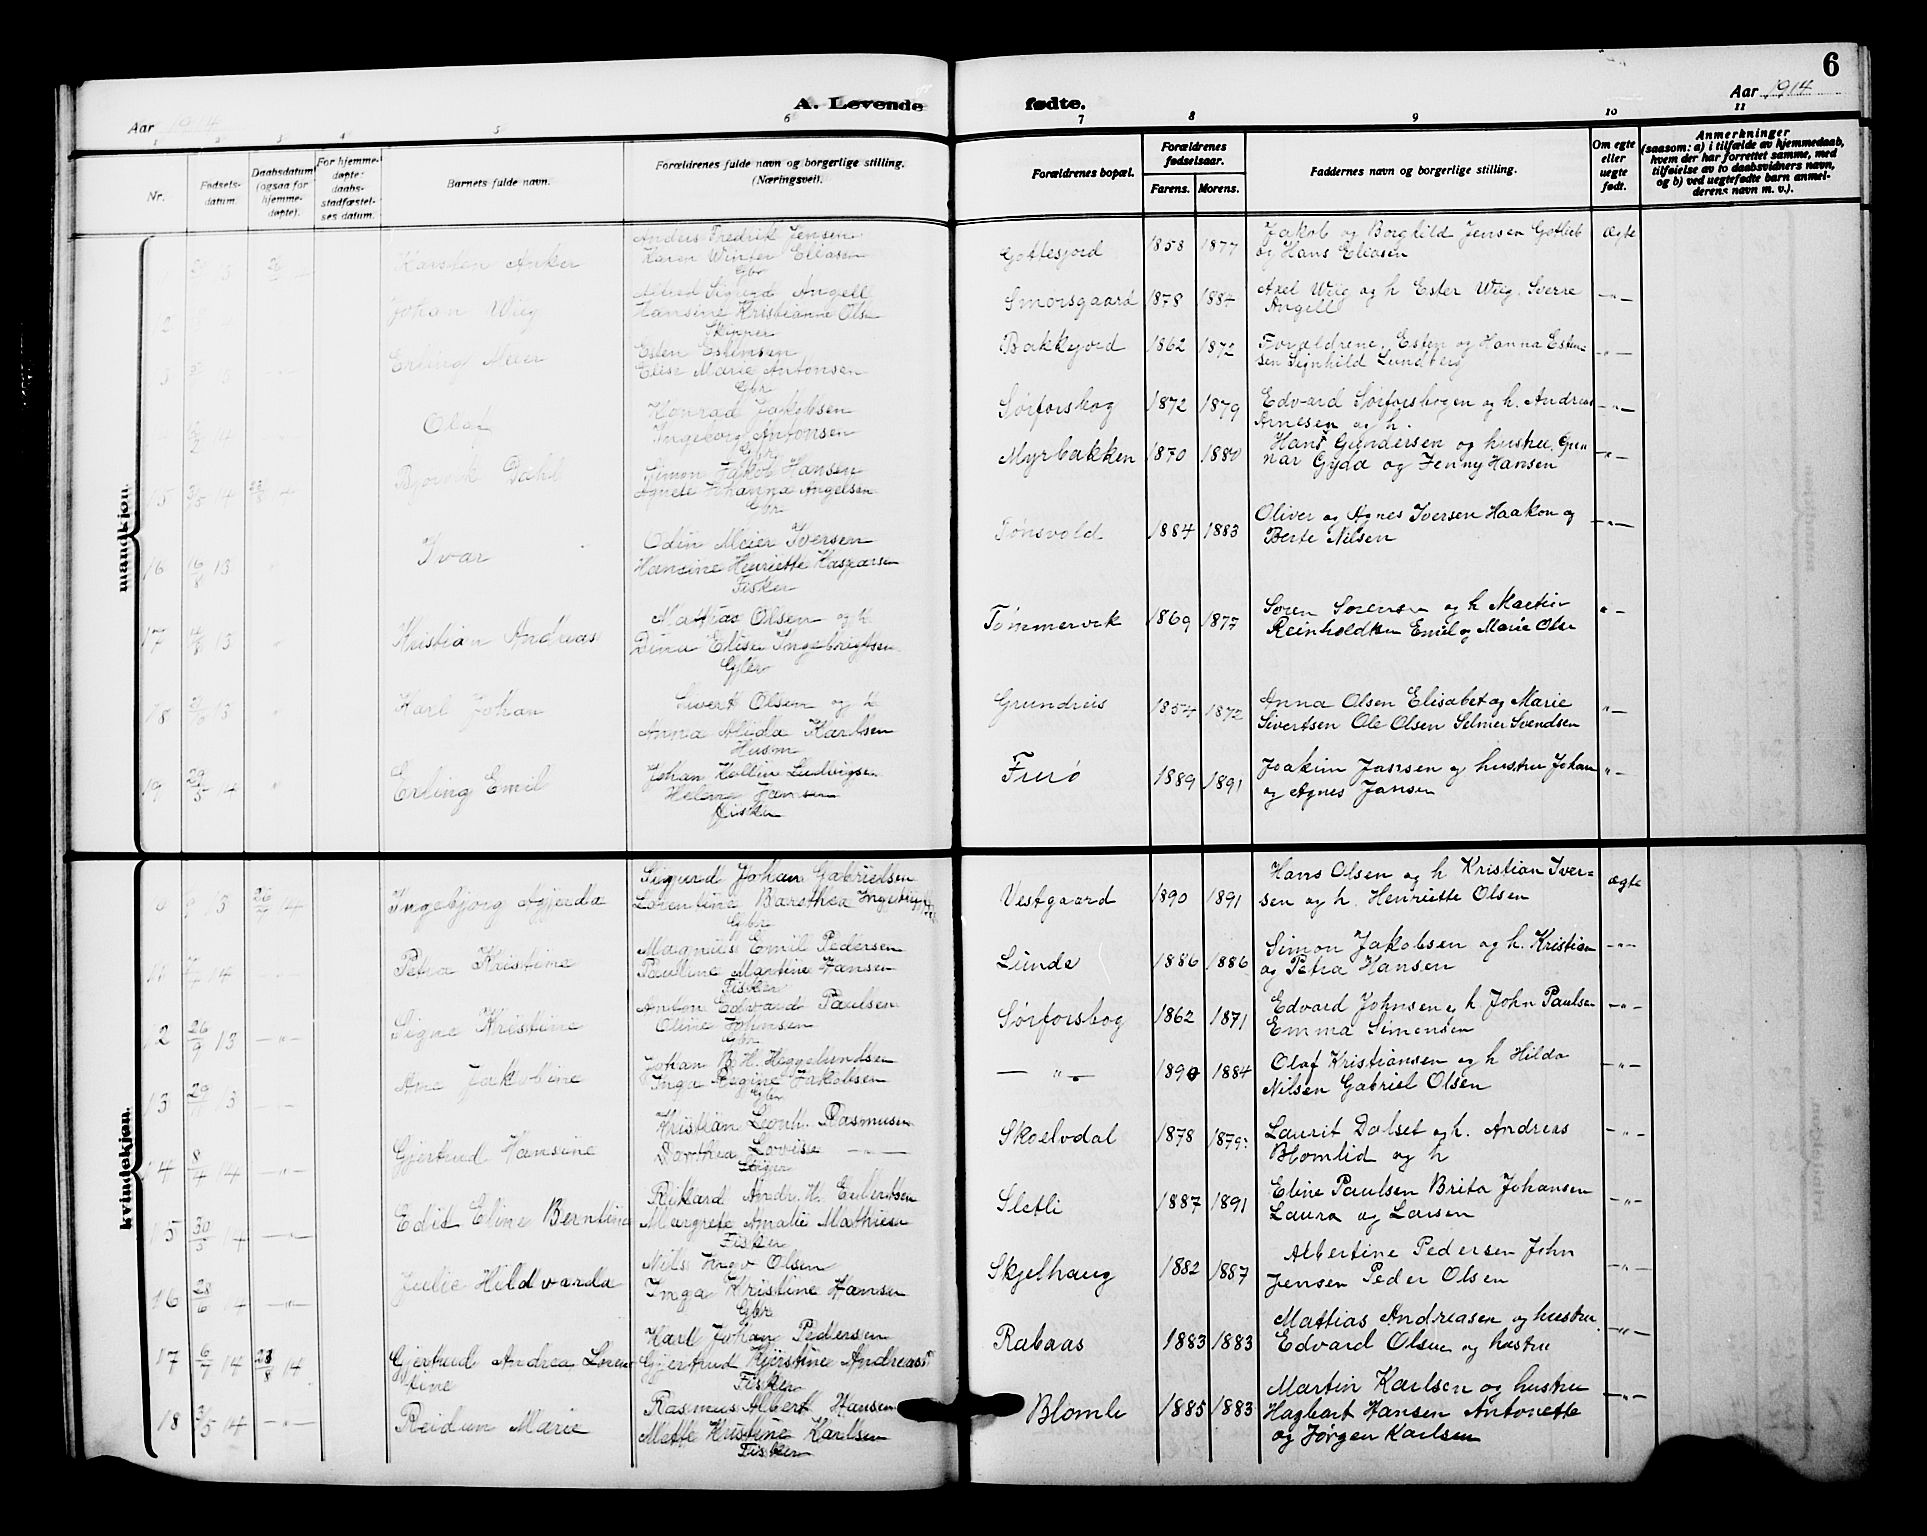 6
A. Levende fødte.
Aar 1914
Aar 1914
1 2 3 4 5 6 7 8 9 10 11
Nr.
Fødsels-
datum.
Daabsdatum
(ogsaa for
hjemme-
døpte).
For hjemme-
døpte:
daabs-
stadfæstel-
ses datum.
Barnets fulde navn.
Forældrenes fulde navn og borgerlige stilling.
(Næringsvei).
Forældrenes bopæl.
Forældrenes
fødselsaar.
Farens. Morens.
Faddernes navn og borgerlige stilling.
Om egte
eller
uegte
født.
Anmerkninger
(saasom: a) i tilfælde av hjemmedaab,
hvem der har forrettet samme, med
tilføielse av to daabsvidners navn,
og b) ved uegtefødte barn anmel-
derens navn m. v.).
mandkjøn.
Karsten Anker
Anders Fredrik Jensen
Karen Winter Eliasen
Gbr
Gottesjord 1858 1877
Jakob og Borghild Jensen Gotlieb
og Hans Eliasen
Ægte
12
Johan Wiig
Alfred Sigurd Angell
Hansine Kristianne Olsen
Skipper
Smorsgaard 1878 1884
Axel Wiig og h Ester Wiig. Sverre
Angell
—"—
13
Erling Meier
Esten Estensen
Elise Marie Antonsen
Gbr
Bakkejord 1862 1872
Forældrene, Esten og Hanna Esten-
sen Signhild Lundberg
—"—
Olaf
Konrad Jakobsen
Ingeborg Antonsen
Gbr
Sørforsbog 1872 1879
Edvard Sørforsbogen og h. Andreas
Arnesen og h.
—"—
15 3/5 14 23/8 14
Bjarvik Dahl
Simon Jakob Hansen
Agnete Johanna Angelsen
Gbr
Myrbakken 1870 1880
Hans Gundersen og hustru, Gun
nar Gyda og Jenny Hansen
—"—
16 16/8 13
Ivar
Odin Meier Iversen
Hansine Henriette Kaspersen
Fisker
Tønsvold 1884 1883
Oliver og Agnes Iversen Haakon og
Berte Nilsen
—"—
17
Kristian Andreas
Mathias Olsen og h
Dina Elise Ingebrigtsen
Gbr
Tømmervik 1869 1877
Søren Sørensen og h Martin
Reinholdtsen Emil og Marie Olsen
"—
18
Karl Johan
Sivert Olsen og h
Anna Alida Karlsen
Husm
Grundreis 1854 1872
Anna Olsen Elisabet og Marie
Sivertsen Ole Olsen Selmer Svendsen
"—
19 29/5 14
Erling Emil
Johan Kollin Ludvigsen
Helene Jansen
Fisker
Furø 1889 1891
Joakim Jansen og hustru Johan
og Agnes Jansen
"—
kvindekjøn.
26/7 14
Ingebjørg Agjerda
Sigurd Johan Gabrielsen
Lorentine Barsthea Ingebrigtsen
Gbr
Vestgaard 1890 1891
Hans Olsen og h Kristian Iver-
sen og h. Henriette Olsen
ægte
11
Petra Kristine
Magnus Emil Pedersen
Pauline Martine Hansen
Fisker
Lunde 1886 1886
Simon Jakobsen og h. Kristian
og Petra Hansen
—"—
12 26/9 13 —"—
Signe Kristine
Anton Edvard Paulsen
Oline Johnsen
Gbr
Sørforsbog 1862 1871
Edvard Johnsen og h John Paulsen
Emma Simonsen
—"—
13
Ane Jakobine
Johan B. H. Heggelundsen
Inga Regine Jakobsen
Gbr
— " — 1890 1884
Olaf Kristiansen og h Hilda
Nilsen Gabriel Olsen
—"—
14 8/4 14 —"—
Gjertrud Hansine
Kristian Leonh. Rasmusen
Dorthea Lovise —"—
Skoelvdal 1878 1879
Laurit Dalset og h. Andreas
Blomlid og h
—"—
15 30/5 14 —"—
Edit Eline Berntine
Rikard Andr. H. Eilertsen
Margrete Amalie Mathisen
Fisker
Sletli 1887 1891
Eline Paulsen Brita Johansen
Laura og Larsen
—"—
16 28/6 14 —"—
Julie Hildvarda
Nils Ingv Olsen
Inga Kristine Hansen
Gbr
Skjelhaug 1882 1887
Albertine Pedersen John
Jensen Peder Olsen
—"—
17 6/7 14 23/8 14
Gjertrud Andrea Loren
tine
Karl Johan Pedersen
Gjertrud Kjerstine Andreass
Fisker
Rabaas 1883 1883
Mattias Andreasen og hustru
Edvard Olsen og hustru
—"—
18 3/5 14 —"—
Reidun Marie
Rasmus Albert Hansen
Mette Kristine Karlsen
Fisker
Blomli 1885 1883
Martin Karlsen og hustru
Hagbart Hansen Antonette
og Jørgen Karlsen
—"—